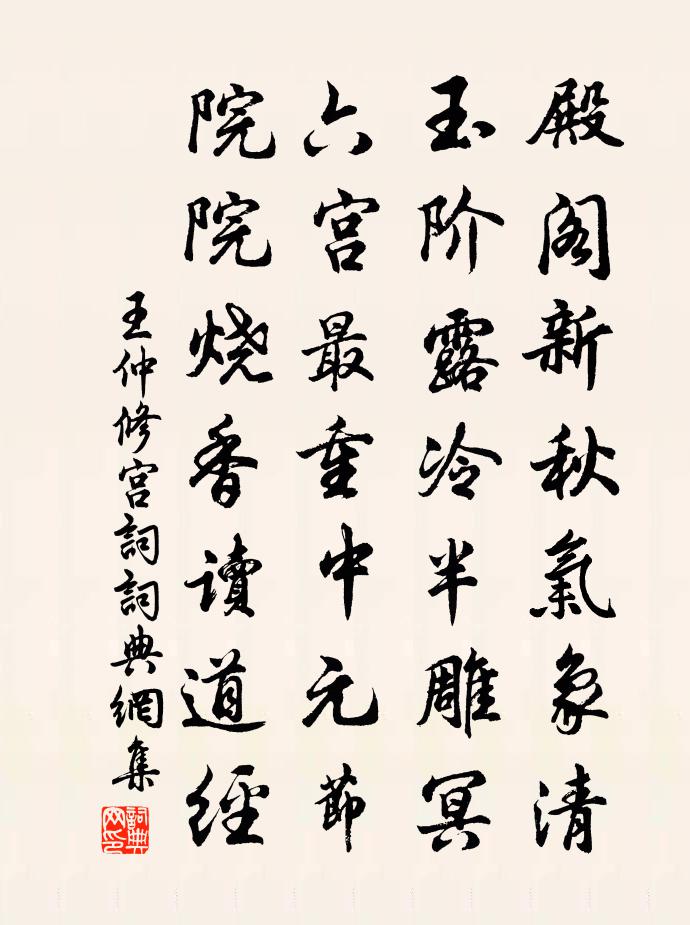 殿阁新秋氣象清
玉阶露冷半雕冥
六宫最重中元節
院院烧香讀道經
王仲修宫詞詞典網集
詞典網印